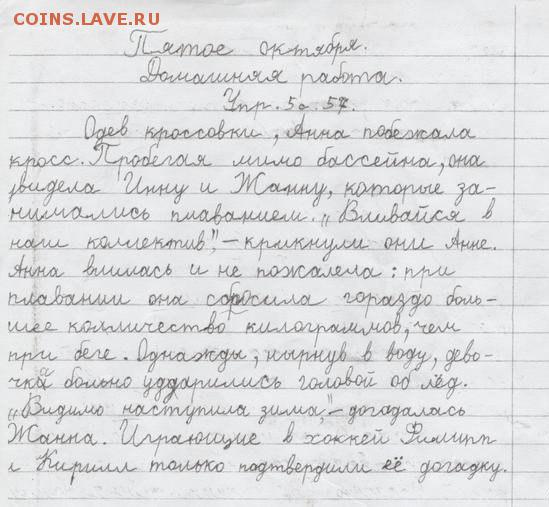 COINS.LAVE.RU
Пятое октября.
Домашняя работа.
Упр. 5 с. 57.
Одев кроссовки, Анна побежала
кросс. Пробегая мимо бассейна, она
увидела Инну и Жанну, которые за-
нимались плаванием. „Вливайся в
наш коллектив", – крикнули они Анне.
Анна влилась и не пожалела: при
плавании она сбросила гораздо боль-
шее колличество килограммов, чем
при беге. Однажды, нырнув в воду, дево-
чки больно ударились головой об лёд.
„Видимо наступила зима", – догадалась
Жанна. Играющие в хоккей Филипп
и Кирилл только подтвердили её догадку.